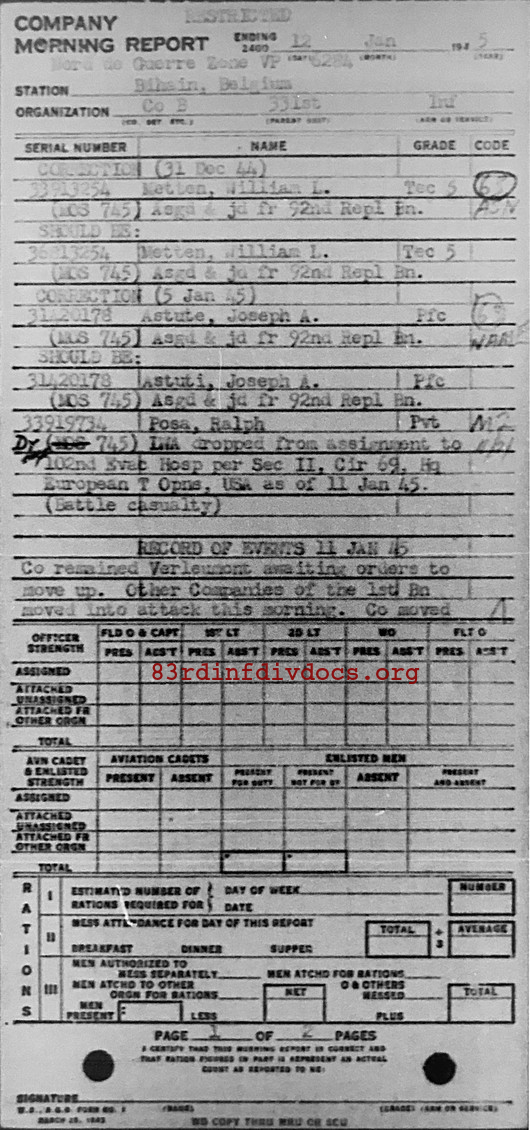 RESTRICTED
COMPANY
MORNING REPORT ENDING 2400 12 Jan 194 5
(DAY) (MONTH) (YEAR)
Nord de Guerre Zone VP 6284
STATION Bihain, Belgium
ORGANIZATION Co B 331st Inf
(CO. DET. ETC.) (PARENT UNIT) (ARM OR SERVICE)
SERIAL NUMBER NAME GRADE CODE
CORRECTION (31 Dec 44)
33913254 Metten, William L. Tec 5 63
(MOS 745) Asgd & jd fr 92nd Repl Bn. ASN
SHOULD BE:
36813254 Metten, William L. Tec 5
(MOS 745) Asgd & jd fr 92nd Repl Bn.
CORRECTION (5 Jan 45)
31420178 Astute, Joseph A. Pfc 63
(MOS 745) Asgd & jd fr 92nd Repl Bn. NAME
SHOULD BE:
31420178 Astuti, Joseph A. Pfc
(MOS 745) Asgd & jd fr 92nd Repl Bn.
33919734 Posa, Ralph Pvt M2
Dy (MOS 745) LWA dropped from assignment to
102nd Evac Hosp per Sec II, Cir 69, Hq
European T Opns, USA as of 11 Jan 45.
(Battle casualty)
RECORD OF EVENTS 11 JAN 45
Co remained Verleumont awaiting orders to
move up. Other Companies of the 1st Bn
moved into attack this morning. Co moved
OFFICER STRENGTH FLD O & CAPT 1ST LT 2D LT WO FLT O
PRES ABS'T PRES ABS'T PRES ABS'T PRES ABS'T PRES ABS'T
83rdinfdivdocs.org
ASSIGNED
ATTACHED UNASSIGNED
ATTACHED FR OTHER ORGN
TOTAL
AVN CADET & ENLISTED STRENGTH AVIATION CADETS ENLISTED MEN
PRESENT ABSENT PRESENT FOR DUTY PRESENT NOT FOR DY ABSENT PRESENT AND ABSENT
ASSIGNED
ATTACHED UNASSIGNED
ATTACHED FR OTHER ORGN
TOTAL
RATIONS
I ESTIMATED NUMBER OF RATIONS REQUIRED FOR DAY OF WEEK DATE NUMBER
II MESS ATTENDANCE FOR DAY OF THIS REPORT TOTAL ÷ 3 AVERAGE
BREAKFAST DINNER SUPPER
III MEN AUTHORIZED TO MESS SEPARATELY MEN ATCHD FOR RATIONS
MEN ATCHD TO OTHER ORGN FOR RATIONS NET O & OTHERS MESSED TOTAL
MEN PRESENT LESS PLUS
PAGE 1 OF 2 PAGES
I CERTIFY THAT THIS MORNING REPORT IS CORRECT AND
THAT RATION FIGURES IN PART III REPRESENT AN ACTUAL
COUNT AS REPORTED TO ME:
SIGNATURE
(NAME) (GRADE) (ARM OR SERVICE)
W.D., A.G.O. FORM NO. 1
MARCH 25, 1943
NO COPY THRU MRU OR SCU